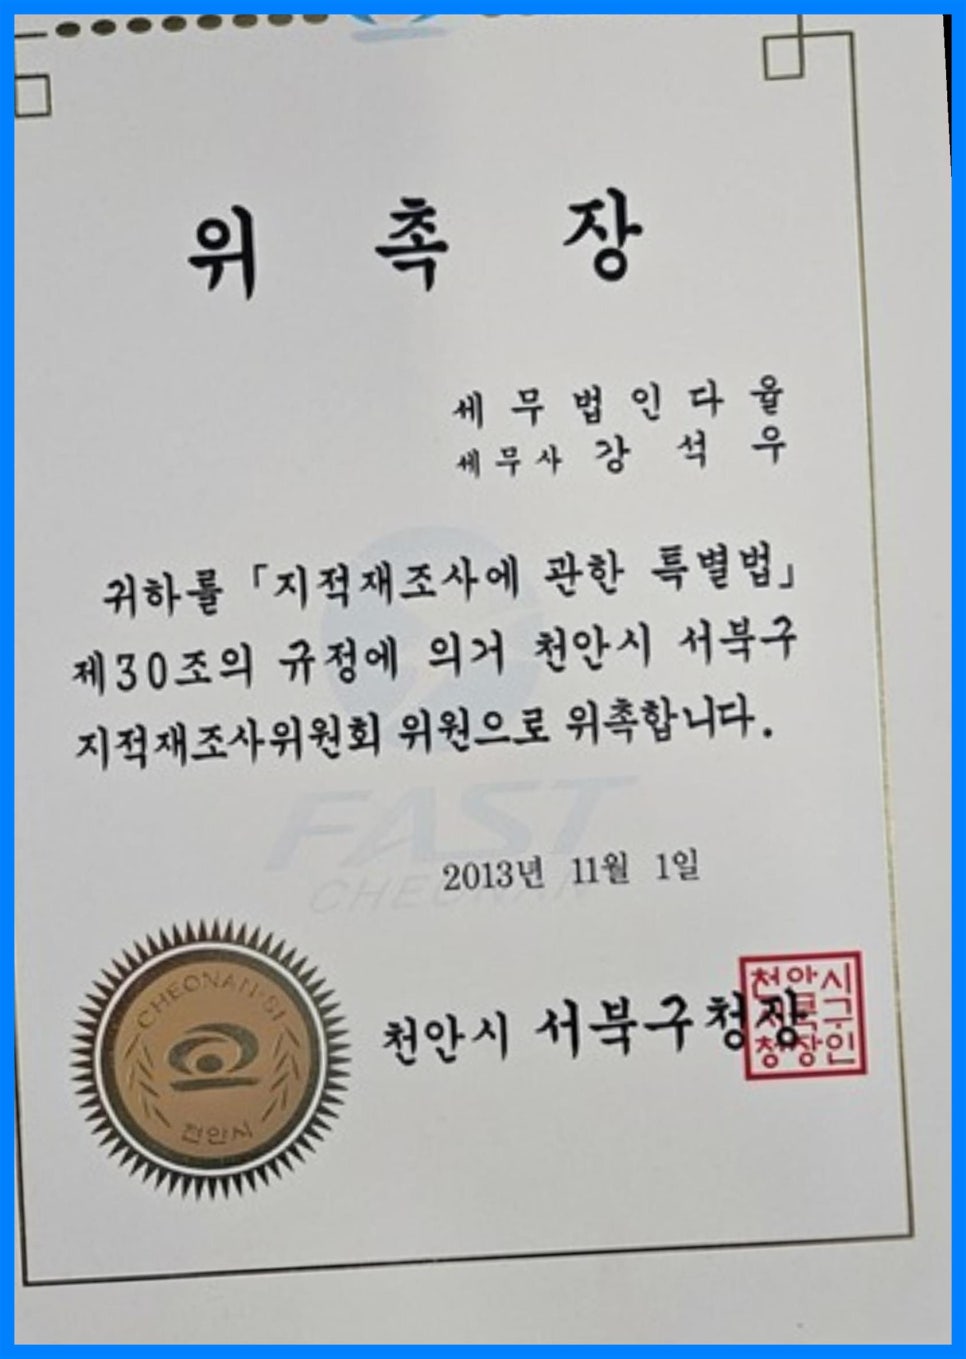 위 촉 장
세 무 법 인 다 율
세 무 사 강 석 우
귀하를 「지적재조사에 관한 특별법」
제30조의 규정에 의거 천안시 서북구
지적재조사위원회 위원으로 위촉합니다.
FAST
CHEONAN
2013년 11월 1일
CHEONAN-SI
천안시
천안시 서북구청장
천안시
서북구
청장인